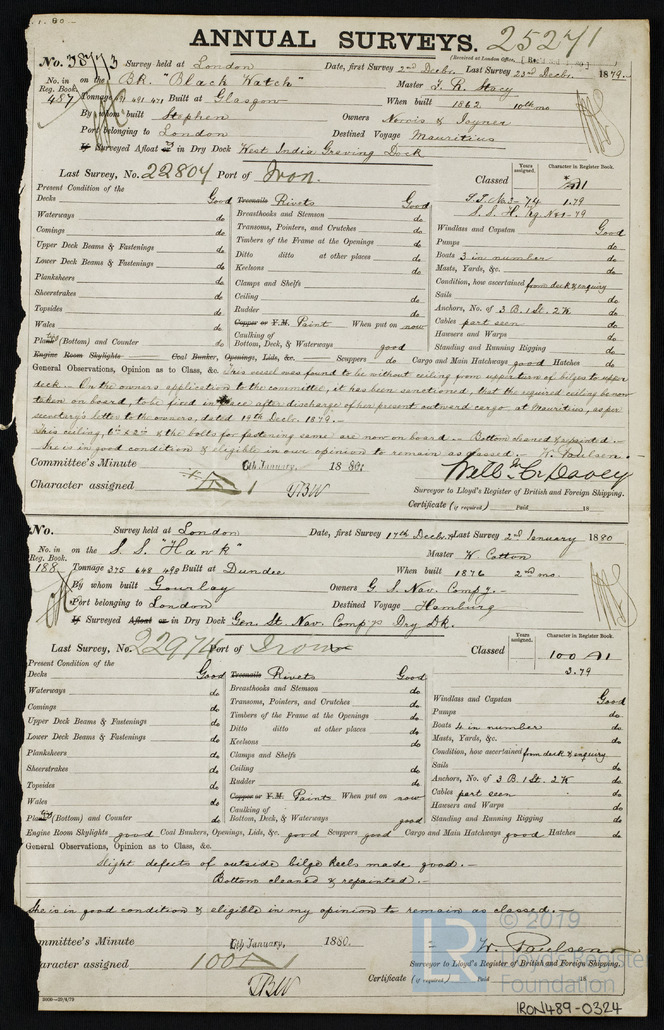 ANNUAL SURVEYS. 25271
(Received at London office,
No. 38773 Survey held at London Date, first Survey 2nd Decbr. Last Survey 23rd Decbr. 1879.
No. in Reg. Book. 487 on the BK. "Black Watch" Master J. R. Stacy
Tonnage 491 471 Built at Glasgow When built 1862 10th mo
By whom built Stephen Owners Norris & Joyner
Port belonging to London Destined Voyage Mauritius
If Surveyed Afloat or in Dry Dock West India Graving Dock
Last Survey, No. 22804 Port of Iron. Classed Years assigned. Character in Register Book.
1.79
Present Condition of the
Decks Good Treenails Rivets Good
Waterways do Breasthooks and Stemson do Windlass and Capstan Good
Comings do Transoms, Pointers, and Crutches do Pumps do
Upper Deck Beams & Fastenings do Timbers of the Frame at the Openings do Boats 3 in number do
Lower Deck Beams & Fastenings do Ditto ditto at other places do Masts, Yards, &c. do
Planksheers do Keelsons do Condition, how ascertained from deck & enquiry
Sheerstrakes do Clamps and Shelfs do Sails do
Topsides do Ceiling do Anchors, No. of 3 B. 1 St. 2 K do
Wales do Rudder do Cables part seen do
Plating (Bottom) and Counter do Copper or Y.M. Paint When put on now Hawsers and Warps do
Caulking of Bottom, Deck, & Waterways good Standing and Running Rigging do
Engine Room Skylights Coal Bunker, Openings, Lids, &c. Scuppers do Cargo and Main Hatchways good Hatches do
General Observations, Opinion as to Class, &c. This vessel was found to be without ceiling from upper turn of bilges to upper
deck. On the owners application to the committee, it has been sanctioned, that the required ceiling be now
taken on board, to be fixed in place after discharge of her present outward cargo at Mauritius, as per
secretary's letter to the owners, dated 19th Decbr 1879.
This ceiling, & the bolts for fastening same are now on board. Bottom cleaned & repainted.
She is in good condition & eligible in our opinion to remain as classed. W. Paulsen.
Committee's Minute 6th January, 1880.
Character assigned
Surveyor to Lloyd's Register of British and Foreign Shipping.
Certificate (if required) Paid 18
No. Survey held at London Date, first Survey 17th Decbr. Last Survey 2nd January 1880
No. in Reg. Book. 188 on the S.S. "Hawk" Master W. Cotton
Tonnage 375 648 498 Built at Dundee When built 1876 2nd mo.
By whom built Gourlay Owners G. S. Nav. Compy.
Port belonging to London Destined Voyage Hamburg
If Surveyed Afloat or in Dry Dock Gen. St. Nav. Compys Dry Dk.
Last Survey, No. 22974 Port of Iron Classed Years assigned. Character in Register Book.
100 A1
3.79
Present Condition of the
Decks Good Treenails Rivets Good
Waterways do Breasthooks and Stemson do Windlass and Capstan Good
Comings do Transoms, Pointers, and Crutches do Pumps do
Upper Deck Beams & Fastenings do Timbers of the Frame at the Openings do Boats 4 in number do
Lower Deck Beams & Fastenings do Ditto ditto at other places do Masts, Yards, &c. do
Planksheers do Keelsons do Condition, how ascertained from deck & enquiry
Sheerstrakes do Clamps and Shelfs do Sails do
Topsides do Ceiling do Anchors, No. of 3 B. 1 St. 2 K do
Wales do Rudder do Cables part seen do
Plating (Bottom) and Counter do Copper or Y.M. Paint When put on now Hawsers and Warps do
Caulking of Bottom, Deck, & Waterways good Standing and Running Rigging do
Engine Room Skylights good Coal Bunkers, Openings, Lids, &c. good Scuppers good Cargo and Main Hatchways good Hatches do
General Observations, Opinion as to Class, &c.
Slight defects of outside bilge keels made good.
Bottom cleaned & repainted.
She is in good condition & eligible in my opinion to remain as classed.
Committee's Minute 6th January, 1880.
Character assigned 100 A 1
W. Paulsen
Surveyor to Lloyd's Register of British and Foreign Shipping.
Certificate (if required) Paid 18
© 2019
Lloyd's Register
Foundation
LR
IRON489-0324